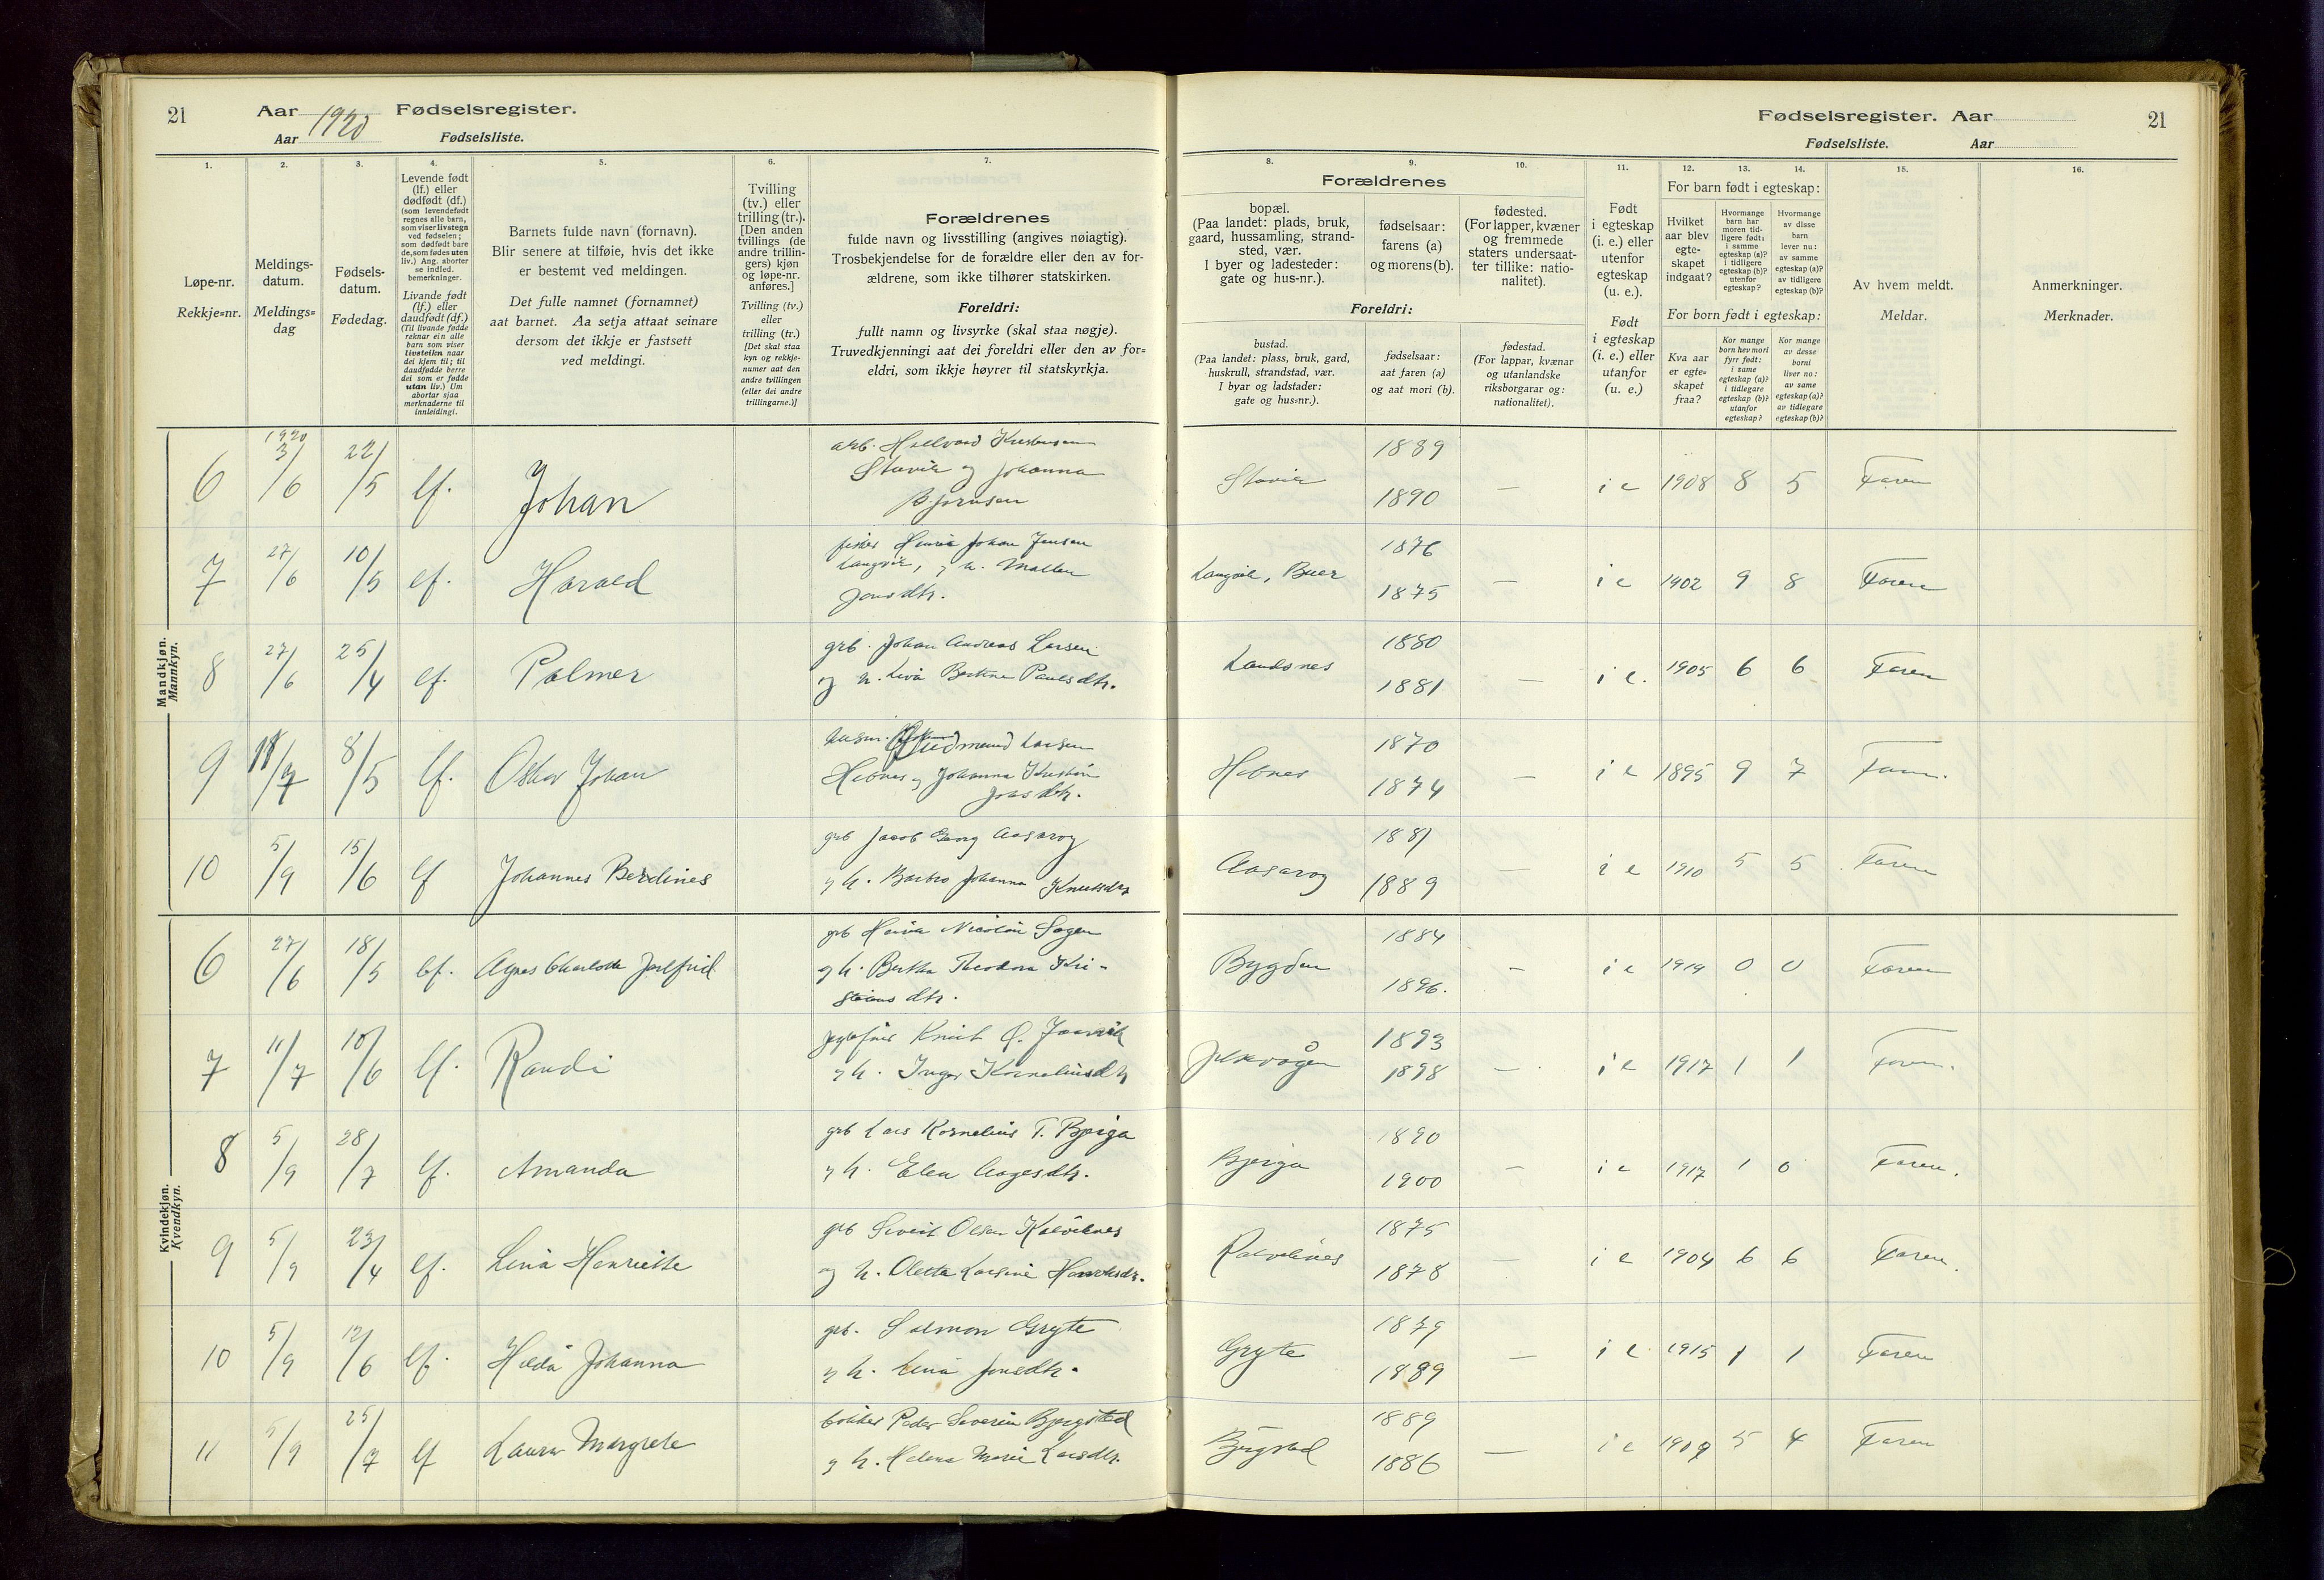 21
Aar 1920 Fødselsregister.
Aar Fødselsliste.
Fødselsregister. Aar
Fødselsliste. Aar
21
1. 2. 3. 4. 5. 6. 7. 8. 9. 10. 11. 12. 13. 14. 15. 16.
Løpe-nr.
Rekkje=nr.
Meldings-
datum.
Meldings=
dag
Fødsels-
datum.
Fødedag.
Levende født
(lf.) eller
dødfødt (df.)
(som levendefødt
regnes alle barn,
som viser livstegn
ved fødselen;
som dødfødt bare
de, som fødes uten
liv.) Ang. aborter
se indled.
bemerkninger.
Livande født
(lf.) eller
daudfødt (df.)
(Til livande fødde
reknar ein alle
barn som viser
livsteikn naar
dei kjem til; til
daudfødde berre
dei som er fødde
utan liv.) Um
abortar sjaa
merknaderne til
innleidingi.
Barnets fulde navn (fornavn).
Blir senere at tilføie, hvis det ikke
er bestemt ved meldingen.
Det fulle namnet (fornamnet)
aat barnet. Aa setja attaat seinare
dersom det ikkje er fastsett
ved meldingi.
Tvilling
(tv.) eller
trilling (tr.).
[Den anden
tvillings (de
andre trillin-
gers) kjøn
og løpe-nr.
anføres.]
Tvilling (tv.)
eller
trilling (tr.)
[Det skal staa
kyn og rekkje-
numer aat den
andre tvillingen
(eller dei andre
trillingarne.)]
Forældrenes
fulde navn og livsstilling (angives nøiagtig).
Trosbekjendelse for de forældre eller den av for-
ældrene, som ikke tilhører statskirken.
Foreldri:
fullt namn og livsyrke (skal staa nøgje).
Truvedkjenningi aat dei foreldri eller den av for=
eldri, som ikkje høyrer til statskyrkja.
Forældrenes
bopæl.
(Paa landet: plads, bruk,
gaard, hussamling, strand-
sted, vær.
I byer og ladesteder:
gate og hus-nr.).
fødselsaar:
farens (a)
og morens (b).
fødested.
(For lapper, kvæner
og fremmede
staters undersaat-
ter tillike: natio-
nalitet).
Foreldri:
bustad.
(Paa landet: plass, bruk, gard,
huskrull, strandstad, vær.
I byar og ladstader:
gate og hus=nr.).
fødselsaar:
aat faren (a)
og aat mori (b).
fødestad.
(For lappar, kvænar
og utanlandske
riksborgarar og:
nationalitet).
Født
i egteskap
(i. e.) eller
utenfor
egteskap
(u. e.).
Født
i egteskap
(i. e.) eller
utanfor
(u. e.)
For barn født i egteskap:
Hvilket
aar blev
egte-
skapet
indgaat?
Hvormange
barn har
moren tid-
ligere født:
i samme
egteskap (a)?
i tidligere
egteskap (b)?
utenfor
egteskap?
Hvormange
av disse
barn
lever nu:
av samme
egteskap (a)?
av tidligere
egteskap (b)?
For born født i egteskap:
Kva aar
er egte=
skapet
fraa?
Kor mange
born hev mori
fyrr født:
i same
egteskap (a)?
i tidlegare
egteskap (b)?
utanfor
egteskap?
Kor mange
av desse
borni
liver no:
av same
egteskap (a)?
av tidlegare
egteskap (b)?
Av hvem meldt.
Meldar.
Anmerkninger.
Merknader.
Mandkjøn.
Mannkyn.
6 1920 3/6 22/5 lf. Johan arb. Halvard Kristensen
Stavik og Johanna
Bjørnsen Stavik 1889 1890 — i e 1908 8 5 Faren
7 27/6 10/5 lf. Harald fisker Henrik Johan Jensen
Langvik, og h. Malene
Jonsdtr. Langvik, Buer 1876 1875 — i e 1902 9 8 Faren
8 27/6 25/4 lf. Palmer grb. Johan Andreas Larsen
og h. Liva Bertine Paulsdtr. Landsnes 1880 1881 — i e. 1905 6 6 Faren
9 11/7 8/5 lf. Oskar Johan husm. Gudmund Larsen
Hebnes og Johanna Kristine
Jonsdtr. Hebnes 1870 1874 — i e 1895 9 7 Faren.
10 5/9 15/6 lf Johannes Berdines grb Jacob Georg Aasarøy
og h. Barbro Johanna Knutsdtr Aasarøy 1881 1889 — i e 1910 5 5 Faren
Kvindekjøn.
Kvendkyn.
6 27/6 18/5 lf. Agnes Charlotte Jarlfrid grb Henrik Nicolai Sagen
og h. Bertha Theodora Kri-
stiansdtr. Bygden 1884 1896. — i e 1919 0 0 Faren
7 11/7 10/6 lf. Randi Knut
og h. Inger Korneliusdtr 1893 1898 — i e 1917 1 1 Faren.
8 5/9 28/7 lf. Amanda grb Lars Kornelius T. Bjerga
og h. Elen Aagesdtr. Bjerga 1890 1900 — i e 1917 1 0 Faren.
9 5/9 23/4 lf. Lina Henriette grb Sivert Olsen Kalvelines
og h. Oletta Larsine Henriksdtr. Kalvelines 1875 1878 — i e 1904 6 6 Faren.
10 5/9 12/6 lf. Hilda Johanna grb. Salmon Gryte
og h. Lina Jonsdtr. Gryte 1879 1889 — i e 1915 1 1 Faren
11 5/9 25/7 lf Laura Margrete bøkker Peder Severin Bjergsted
og h. Helene Marie Larsdtr. Bjergsted 1889 1886 — i e 1909 5 4 Faren